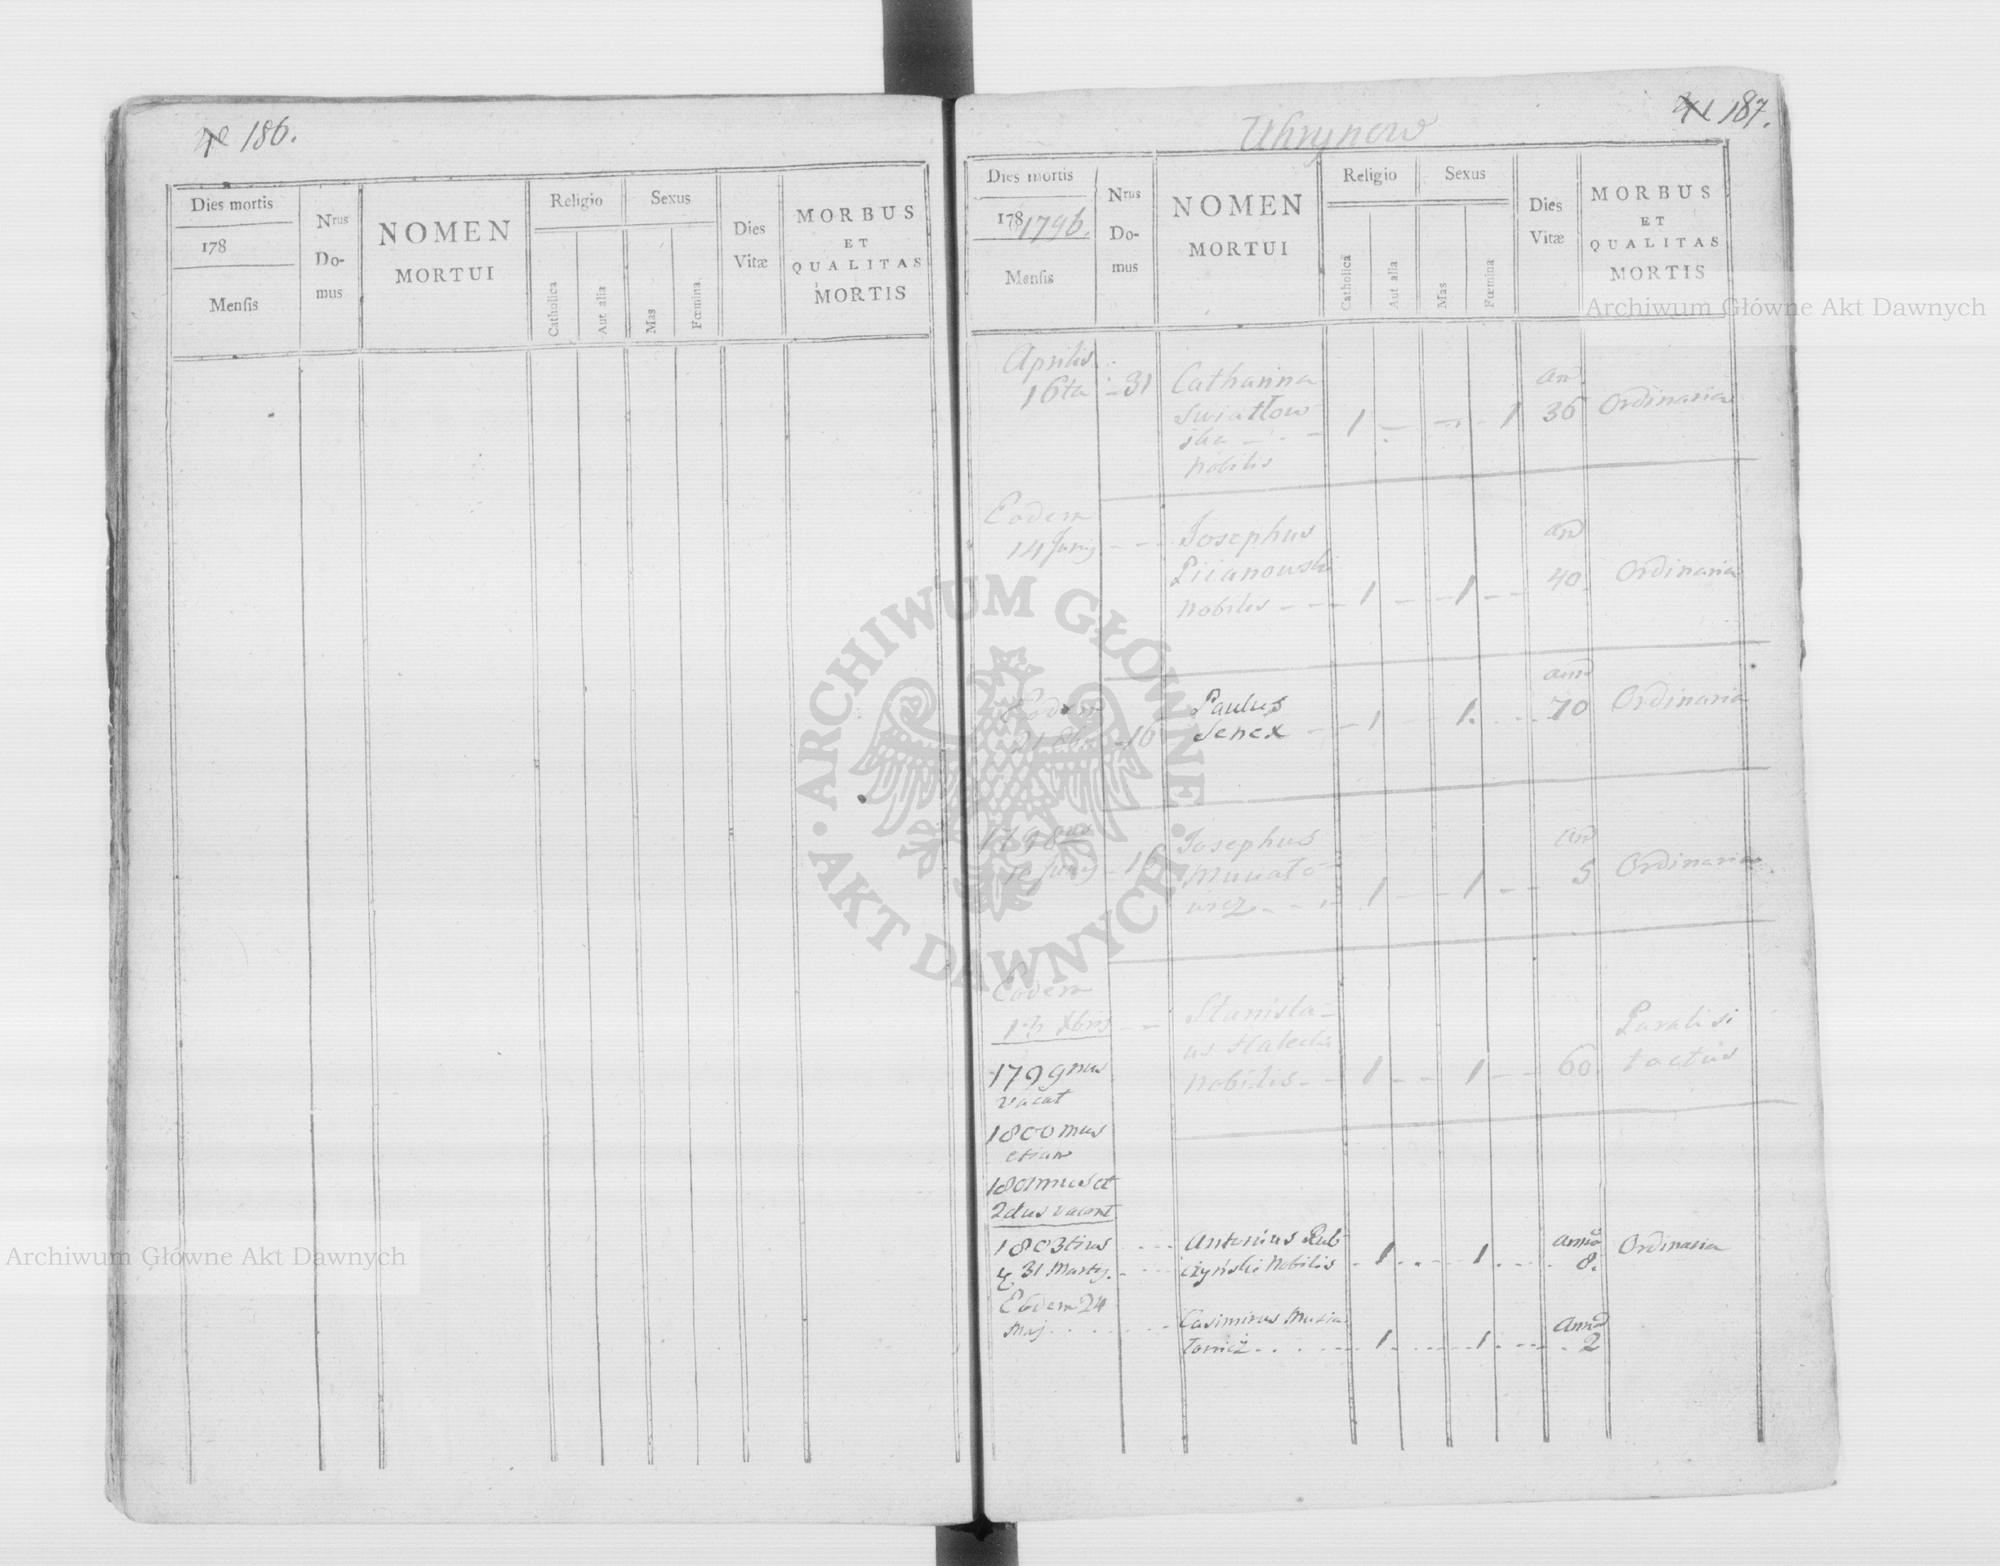 186.
Dies mortis
178
Mensis
Nrus
Do-
mus
NOMEN
MORTUI
Religio
Catholica
Aut alia
Sexus
Mas
Fœmina
Dies
Vitæ
MORBUS
ET
QUALITAS
MORTIS
187.
Uhrynow
Dies mortis
178 1796.
Mensis
Nrus
Do-
mus
NOMEN
MORTUI
Religio
Catholica
Aut alia
Sexus
Mas
Fœmina
Dies
Vitæ
MORBUS
ET
QUALITAS
MORTIS
Aprilis
16ta - 31
Catharina
Swiatłow
ska
Nobilis
1 1
36 Ordinaria
Eodem
14 Junij
Josephus
Nobilis
1 1
40 Ordinaria
Eodem
16
Paulus
Senex
1 1
70 Ordinaria
1798
Junij 16
Josephus
wicz
1 1
5 Ordinaria
Eodem
Xbris
Stanisla-
us
Nobilis
1 1
60
Paralisi
tactus
1799nus
vacat
1800mus
etiam
1801mus et
2dus vacant
1803tius
31 Martij
Antonius Rub
czyński Nobilis
1 1
8. Ordinaria
Eodem 24
Maj
Casimirus
1 1
2
Archiwum Główne Akt Dawnych
ARCHIWUM GŁÓWNE
AKT DAWNYCH
Archiwum Główne Akt Dawnych